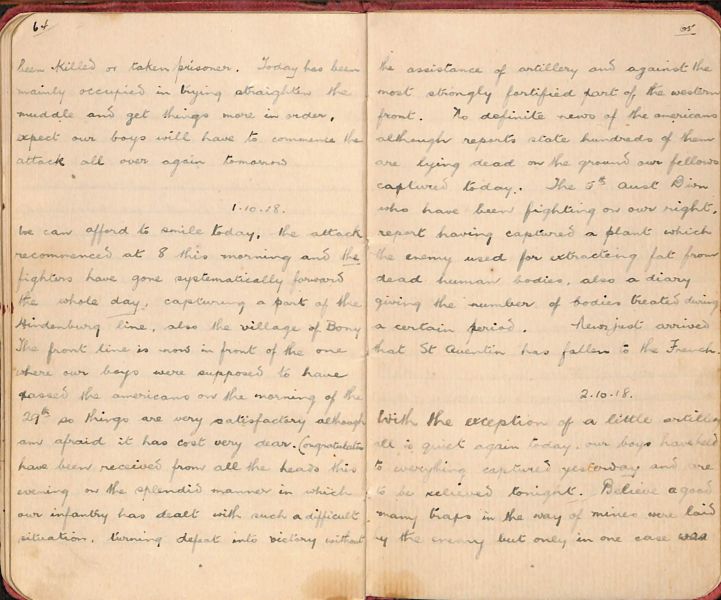 64
been killed or taken prisoner. Today has been
mainly occupied in trying straighten the
muddle and get things more in order,
expect our boys will have to commence the
attack all over again tomorrow
1.10.18.
We can afford to smile today, the attack
recommenced at 8 this morning and the
fighters have gone systematically forward
the whole day, capturing a part of the
Hindenburg line, also the village of Bony
The front line is now in front of the one
where our boys were supposed to have
passed the americans on the morning of the
29th so things are very satisfactory although
am afraid it has cost very dear. Congratulations
have been received from all the heads this
evening on the splendid manner in which
our infantry has dealt with such a difficult
situation, turning defeat into victory without
65
the assistance of artillery and against the
most strongly fortified part of the western
front. No definite news of the americans
although reports state hundreds of them
are lying dead on the ground our fellows
captured today. The 5th Aust Divn
who have been fighting on our right,
report having captured a plant which
the enemy used for extracting fat from
dead human bodies, also a diary
giving the number of bodies treated during
a certain period. News just arrived
that St Quentin has fallen to the French.
2.10.18.
With the exception of a little artillery
all is quiet again today, our boys have held
to everything captured yesterday and are
to be relieved tonight. Believe a good
many traps in the way of mines were laid
by the enemy but only in one case was